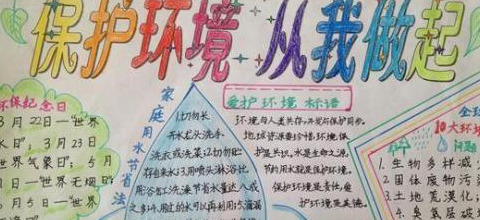 保护环境 从我做起
环保纪念日
3月22日—"世界
水日", 3月23日
"世界气象日"; 5月
1日—"世界无烟日"
6月5日—"世界
家庭用水节省法
1.切勿长
开水龙头洗手、
洗衣或洗菜;2.切勿把
爱护环境 标语
环境与人类共存,开发与保护同步。
地球资源要珍惜,环境保
护是共识。水是生命之源,
节约用水就是保护环境。
保护环境是责任,爱
护环境是美德。
全球
10大环境
问题
1.生物多样减
2.固体废物污染
3.土地荒漠化;
4.臭氧层破